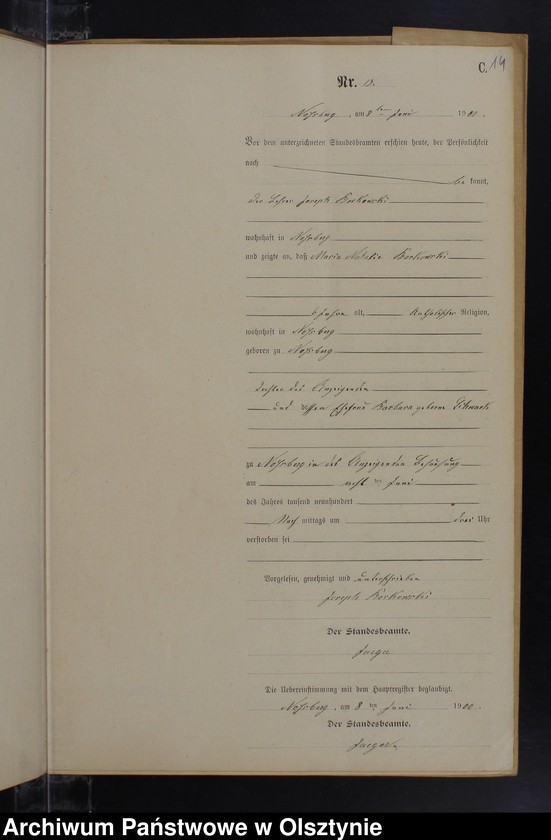 C. 14
Nr. 13.
Noßberg, am 8ten Juni 1900.
Vor dem unterzeichneten Standesbeamten erschien heute, der Persönlichkeit
nach
be kannt,
der Lehrer Joseph Borkowski
wohnhaft in Noßberg
und zeigte an, daß Maria Natalie Borkowski
6 Jahre alt, katholischer Religion,
wohnhaft in Noßberg
geboren zu Noßberg
Tochter des Anzeigenden
und dessen Ehefrau Barbara geborne
zu Noßberg in des Anzeigenden Behausung
am acht ten Juni
des Jahres tausend neunhundert
Nach mittags um drei Uhr
verstorben sei
Vorgelesen, genehmigt und unterschrieben
Joseph Borkowski
Der Standesbeamte.
Jaeger
Die Uebereinstimmung mit dem Hauptregister beglaubigt.
Noßberg, am 8 ten Juni 1900.
Der Standesbeamte.
Jaeger
Archiwum Państwowe w Olsztynie